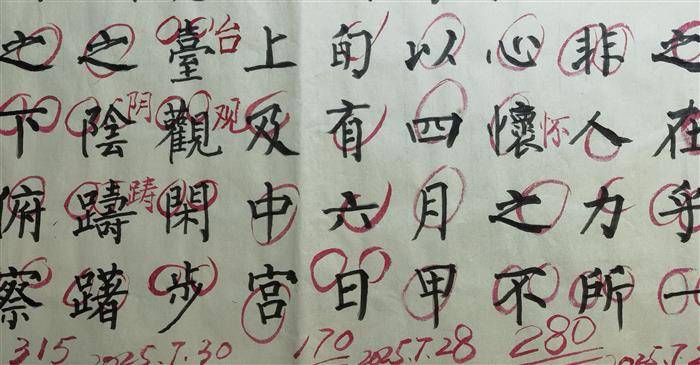 之在乎一
非人力所
心懷之不
怀
以四月甲
旬有六日
上及中宮
臺觀閑步
台
观
之陰躊躇
阴
踌
之下俯察
315 2025.7.30 170 2025.7.28 280